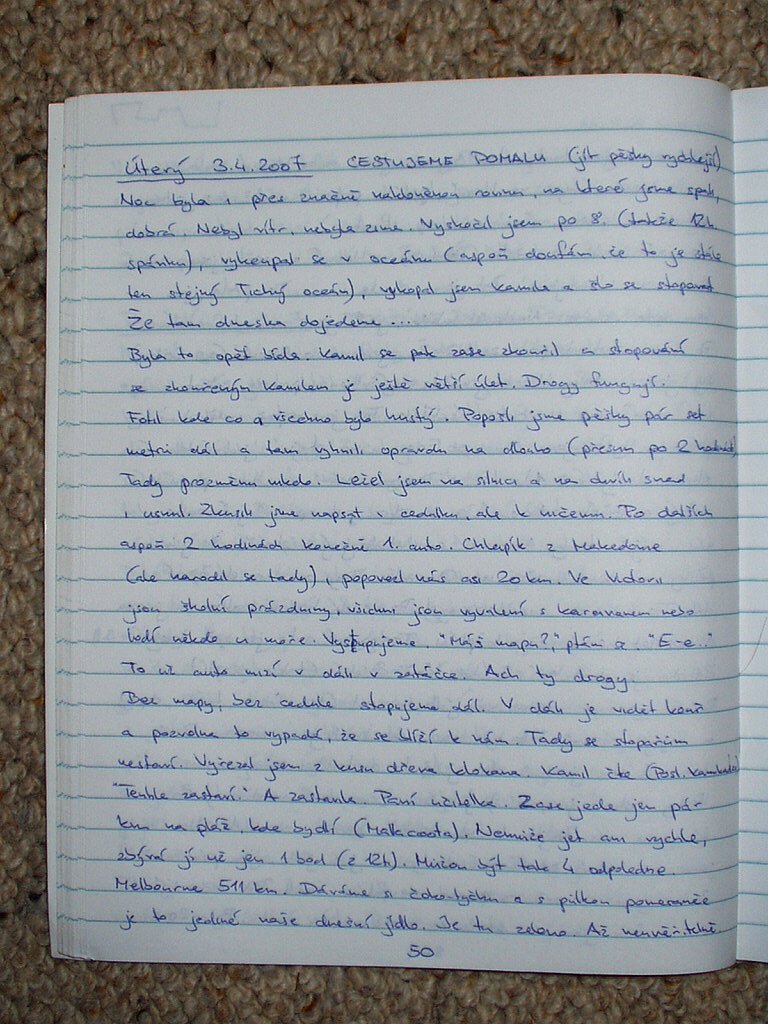 Úterý 3.4.2007 CESTUJEME POMALU (jít pěšky rychlejší)
Noc byla i přes značně nakloněnou rovinu, na které jsme spali,
dobrá. Nebyl vítr, nebyla zima. Vyskočil jsem po 8. (takže 12h.
spánku), vykoupal se v oceánu (aspoň doufám, že to je stále
ten stejný Tichý oceán), vykopal jsem Kamila a šlo se stopovat
Že tam dneska dojedeme...
Byla to opět bída. Kamil se pak zase zkouřil a stopování
se zkouřeným Kamilem je ještě větší úlet. Drogy fungují.
Fotil kde co a všechno bylo hustý. Popošli jsme pěšky pár set
metrů dál a tam vyhnili opravdu na dlouho (přesun po 2 hodinách)
Tady prozměnu nikdo. Ležel jsem na silnici a na chvíli snad
i usnul. Zkusili jsme napsat i cedulku, ale k ničemu. Po dalších
aspoň 2 hodinách konečně 1. auto. Chlapík z Makedonie
(ale narodil se tady), popovezl nás asi 20 km. Ve Victorii
jsou školní prázdniny, všichni jsou vyvalení s karavanem nebo
lodí někde u moře. Vystupujeme. "Máš mapu?", ptám se. "E-e.."
To už auto mizí v dáli v zatáčce. Ach ty drogy.
Bez mapy, bez cedule stopujeme dál. V dáli je vidět kouř
a pozvolna to vypadá, že se blíží k nám. Tady se stopařům
nestaví. Vyřezal jsem z kusu dřeva klokana. Kamil čte (Posl. kamikadze)
"Tenhle zastaví." A zastavila. Paní učitelka. Zase jede jen pár
km na pláž, kde bydlí (Mallacoota). Nemůže jet ani rychle,
zbývá jí už jen 1 bod (z 12h). Musí být tak 4 odpoledne.
Melbourne 511 km. Dáváme si čoko-tyčku a s půlkou pomeranče
je to jediné naše dnešní jídlo. Je tu zeleno. Až neuvěřitelně
50